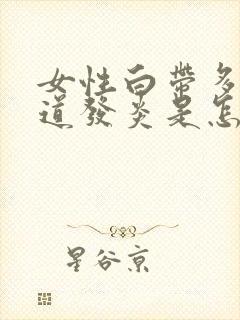 女性白帶多
道發炎是怎
星谷京